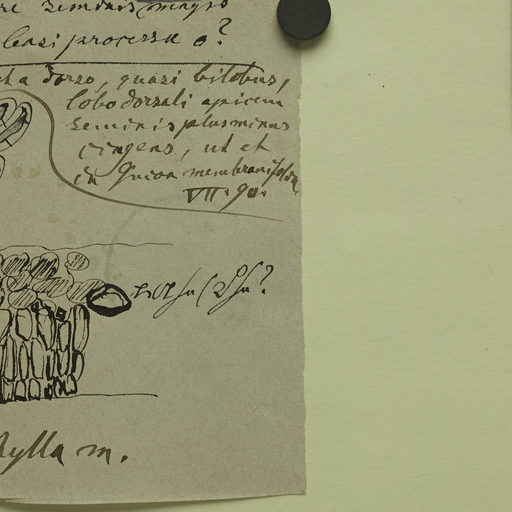 re seminis margo
basi processu o?
dorso, quasi bilobus,
lobo dorsali apicem
seminis plus minus
cingens, ut et
in Guioa membranifolia
VII. 90.
hylla m.